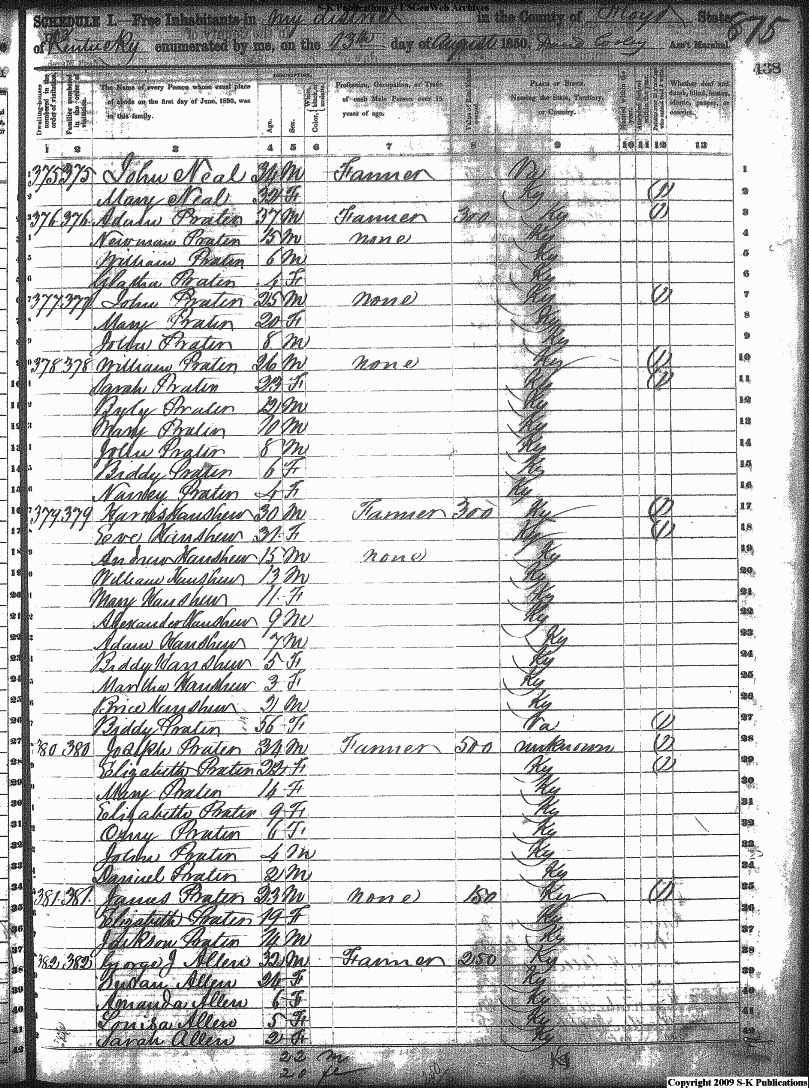 S-K Publications - USGenWeb Archives
SCHEDULE I.—Free Inhabitants in my district in the County of Floyd State 875
of Kentucky enumerated by me, on the 13th day of August 1850. Ass't Marshal.
438
DESCRIPTION.
Dwelling-houses numbered in the order of visitation. Families numbered in the order of visitation. The Name of every Person whose usual place of abode on the first day of June, 1850, was in this family. Age. Sex. Color, Profession, Occupation, or Trade of each Male Person over 15 years of age. Value of Real Estate owned. PLACE OF BIRTH. Naming the State, Territory, or Country. Whether deaf and dumb, blind, insane, idiotic, pauper, or convict.
1 2 3 4 5 6 7 8 9 10 11 12 13
375 375 John Neal 34 M Farmer Va 1
Mary Neal 32 F Ky (1) 2
376 376 Adam Prater 37 M Farmer 300 Ky (1) 3
Newman Prater 15 M none Ky 4
William Prater 6 M Ky 5
Prater 4 F Ky 6
377 377 John Prater 25 M none Ky (1) 7
Mary Prater 20 F Ky 8
John Prater 8 M Ky 9
378 378 William Prater 26 M none Ky (1) 10
Sarah Prater 23 F Ky (1) 11
Prater 21 M Ky 12
Mary Prater 10 M Ky 13
John Prater 8 M Ky 14
Biddy Prater 6 F Ky 15
Nancy Prater 4 F Ky 16
379 379 Hanshew 30 M Farmer 300 Ky (1) 17
Eve Hanshew 31 F Ky (1) 18
Andrew Hanshew 15 M none Ky 19
William Hanshew 13 M Ky 20
Mary Hanshew 11 F Ky 21
Alexander Hanshew 9 M Ky 22
Adam Hanshew 7 M Ky 23
Biddy Hanshew 5 F Ky 24
Martha Hanshew 3 F Ky 25
Brice Hanshew 2 M Ky 26
Biddy Prater 56 F Va (1) 27
380 380 Joseph Prater 34 M Farmer 500 unknown (1) 28
Elizabeth Prater 22 F Ky (1) 29
Mary Prater 14 F Ky 30
Elizabeth Prater 9 F Ky 31
Prater 6 F Ky 32
John Prater 4 M Ky 33
Daniel Prater 2 M Ky 34
381 381 James Prater 23 M none 150 Ky (1) 35
Elizabeth Prater 19 F Ky 36
Jackson Prater M Ky 37
382 382 George J Allen 32 M Farmer 250 Ky 38
Susan Allen 24 F Ky 39
Amanda Allen 6 F Ky 40
Louisa Allen 5 F Ky 41
Sarah Allen 2 F Ky 42
22 m
20 fe
Copyright 2009 S-K Publications